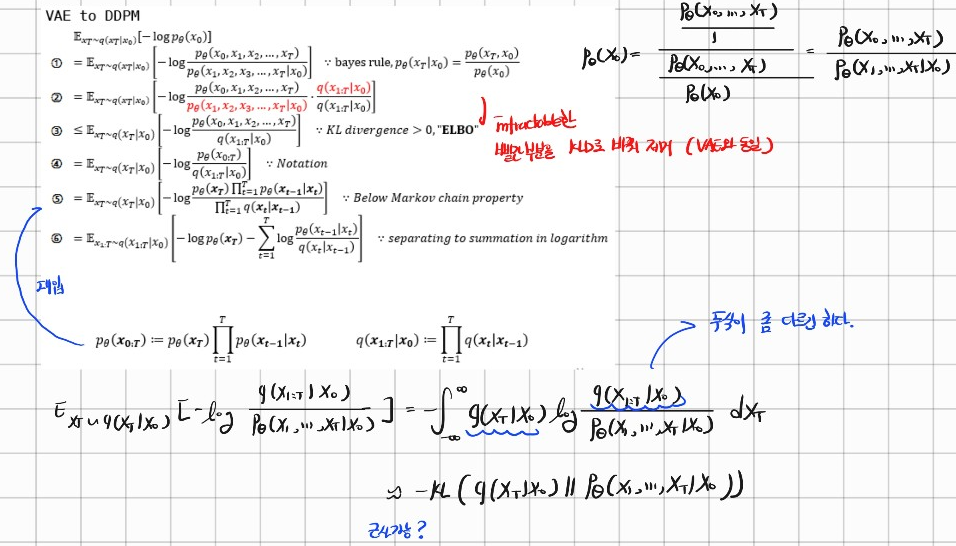 VAE to DDPM
𝔼_{x_T~q(x_T|x_0)}[−log p_θ(x_0)]
① = 𝔼_{x_T~q(x_T|x_0)}[−log p_θ(x_0, x_1, x_2, …, x_T) / p_θ(x_1, x_2, x_3, …, x_T|x_0)] ∵ bayes rule, p_θ(x_T|x_0) = p_θ(x_T, x_0) / p_θ(x_0)
② = 𝔼_{x_T~q(x_T|x_0)}[−log p_θ(x_0, x_1, x_2, …, x_T) / p_θ(x_1, x_2, x_3, …, x_T|x_0) · q(x_{1:T}|x_0) / q(x_{1:T}|x_0)]
③ ≤ 𝔼_{x_T~q(x_T|x_0)}[−log p_θ(x_0, x_1, x_2, …, x_T) / q(x_{1:T}|x_0)] ∵ KL divergence > 0, "ELBO"
④ = 𝔼_{x_T~q(x_T|x_0)}[−log p_θ(x_{0:T}) / q(x_{1:T}|x_0)] ∵ Notation
⑤ = 𝔼_{x_T~q(x_T|x_0)}[−log p_θ(x_T) ∏_{t=1}^T p_θ(x_{t−1}|x_t) / ∏_{t=1}^T q(x_t|x_{t−1})] ∵ Below Markov chain property
⑥ = 𝔼_{x_{1:T}~q(x_{1:T}|x_0)}[−log p_θ(x_T) − ∑_{t=1}^T log p_θ(x_{t−1}|x_t) / q(x_t|x_{t−1})] ∵ separating to summation in logarithm
P_θ(x_0) = (P_θ(x_0, …, x_T) / 1) / (P_θ(x_0, …, x_T) / P_θ(x_0)) = P_θ(x_0, …, x_T) / P_θ(x_1, …, x_T|x_0)
intractable한
빨간부분을 KLD로 바꿔 제거 (VAE와 동일)
대입
p_θ(x_{0:T}) ≔ p_θ(x_T) ∏_{t=1}^T p_θ(x_{t−1}|x_t) q(x_{1:T}|x_0) ≔ ∏_{t=1}^T q(x_t|x_{t−1})
좀 다르긴 하다.
E_{x_T~q(x_T|x_0)}[−log q(x_{1:T}|x_0) / P_θ(x_1, …, x_T|x_0)] = −∫_{−∞}^{∞} q(x_T|x_0) log q(x_{1:T}|x_0) / P_θ(x_1, …, x_T|x_0) dx_T
≈ −KL(q(x_T|x_0) || P_θ(x_1, …, x_T|x_0))
근사가능?